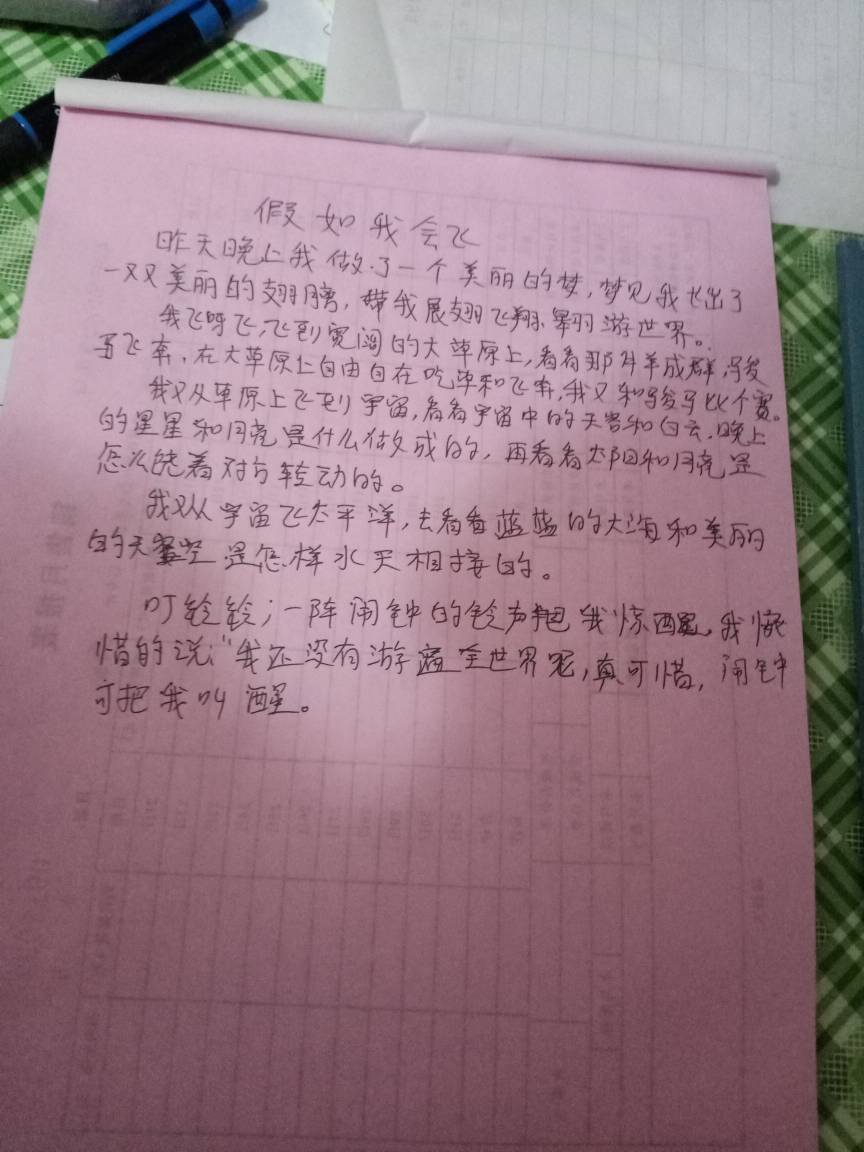 假如我会飞
昨天晚上我做了一个美丽的梦，梦见我长出了
一双美丽的翅膀，带我展翅飞翔，翱翔游世界。
我飞呀飞，飞到宽阔的大草原上，看看那牛羊成群，骏
马飞奔，在大草原上自由自在吃草和飞奔，我又和骏马比个赛。
我又从草原上飞到宇宙，看看宇宙中的天营和白云，晚上
的星星和月亮是什么做成的，再看看太阳和月亮是
怎么绕着对方转动的。
我又从宇宙飞太平洋，去看看蓝蓝的大海和美丽
的天空是怎样水天相接的。
叮铃铃；一阵闹钟的铃声把我惊醒，我惋
惜的说；“我还没有游遍全世界呢，真可惜，闹钟
可把我叫醒。